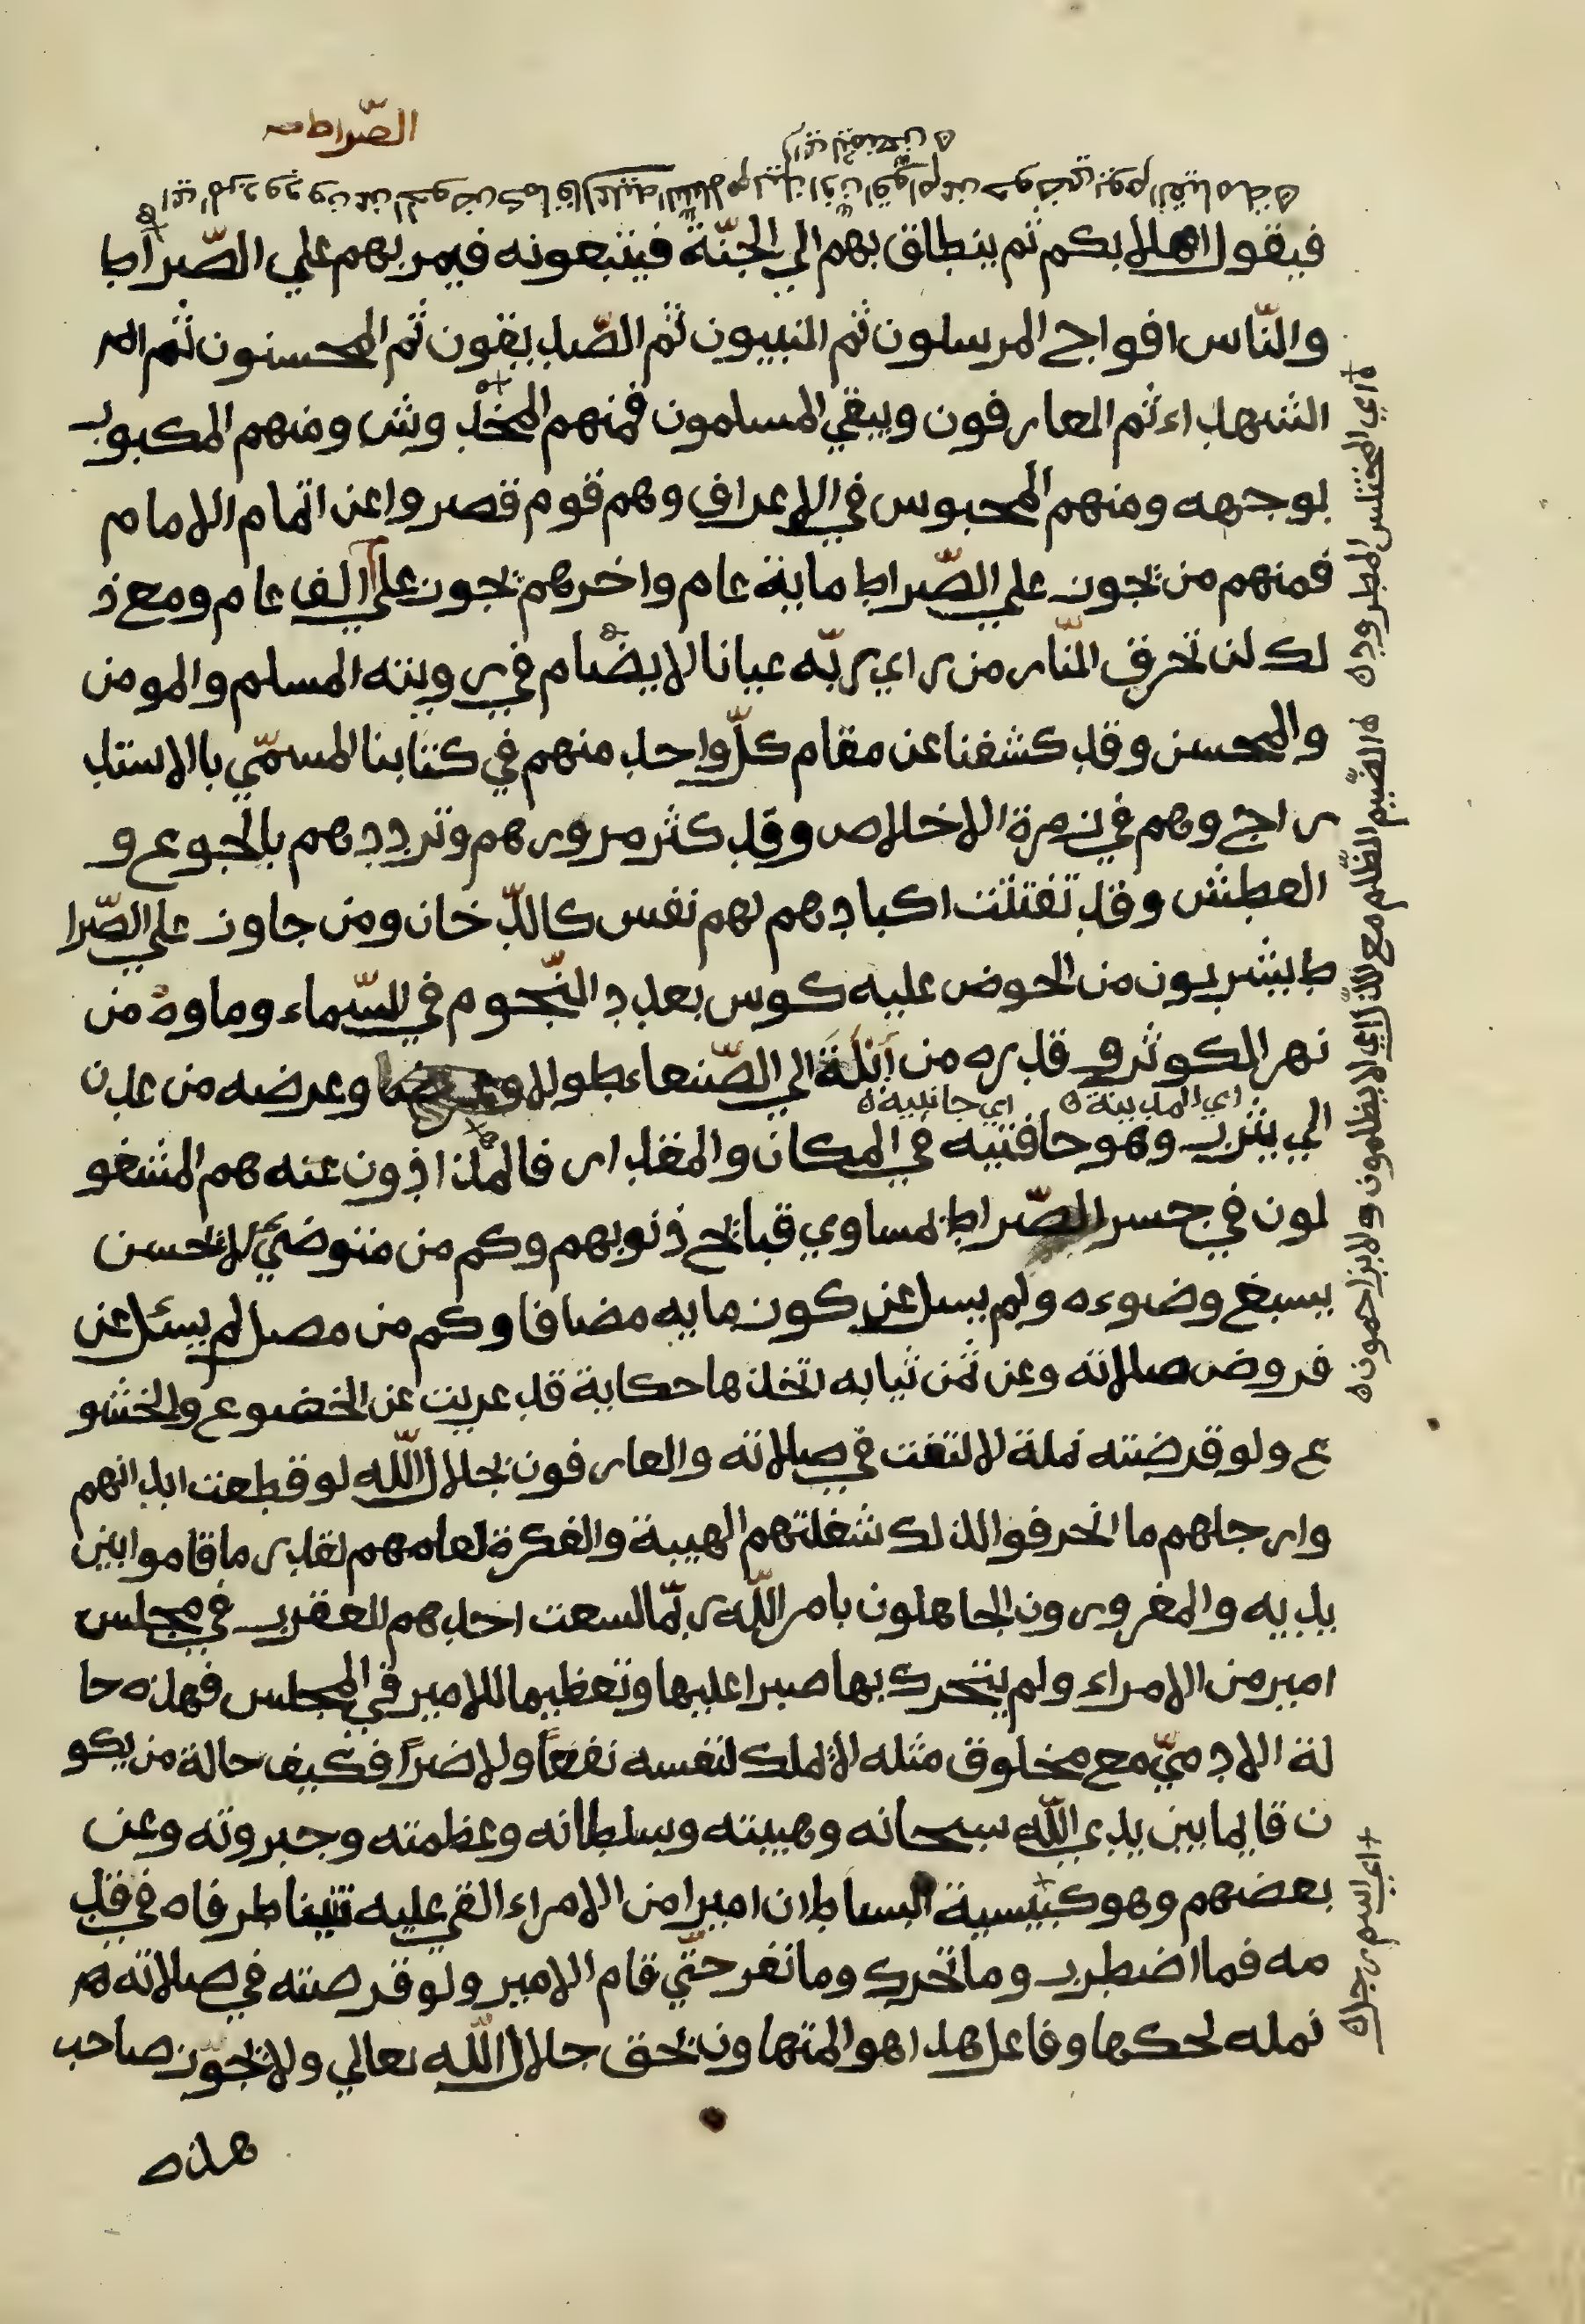 الصّراط
فيقول اهلا بكم ثم ينطلق بهم الي الجنّة فيتبعونه فيمر بهم علي الصّراط
والنّاس افواج المرسلون ثم النبيون ثم الصّديقون ثم المحسنون ثم
الشهداء ثم العارفون ويبقي المسلمون فمنهم المخدوش ومنهم المكبوب
لوجهه ومنهم المحبوس في الاعراف وهم قوم قصروا عن اتمام الامام
فمنهم من تجوز علي الصّراط ماية عام واخرهم تجوز علي الف عام ومع ذ
لك لن تحرق النّار من راي ربّه عيانا لا يضام في رويته المسلم والمومن
والمحسن وقد كشفنا عن مقام كلّ واحد منهم في كتابنا المسمّي بالاستد
راج وهم في زمرة الاخلاص وقد كثر مرورهم وترددهم بالجوع و
العطش وقد تفتتت اكبادهم لهم نفس كالدّخان ومن جاوز علي الصّرا
ط يشربون من الحوض عليه كوس بعدد النّجوم في السّماء وماوه من
نهر الكوثر وقدره من ايلة الي الصّنعاء طولا وعرضه من عدن
اي المدينة اي جانبيه
الي يثرب وهو حافتيه في المكان والمقدار فالمذاذون عنه هم المشغو
لون في جسر الصّراط لمساوي قبائح ذنوبهم وكم من متوضئ لا تحسن
يسبغ وضوءه ولم يسل عن كون مايه مضافا وكم من مصل لم يسئل عن
فروض صلاته وعن ثمن ثيابه اتخذها حكاية قد عريت عن الخضوع والخشو
ع ولو قرضته نملة لالتفت في صلاته والعارفون بجلال اللّه لو قطعت ابدانهم
وارجلهم ما انحرفوا لذلك شغلتهم الهيبة والفكرة لعلمهم بقدر ما قاموا بين
يديه والمغرورون الجاهلون بامر اللّه ربّما لسعت احدهم العقرب في مجلس
امير من الامراء ولم يتحرك بها صبرا عليها وتعظيما للامير في المجلس فهذه حا
لة الادميّ مع مخلوق مثله لا تملك لنفسه نفعاً ولا ضراً فكيف حالة من يكو
ن قايما بين يدي اللّه سبحانه وهيبته وسلطانه وعظمته وجبروته وعن
بعضهم وهو كبيسية السياط ان اميرا من الامراء القي عليه طرفاه في قد
مه فما اضطرب وما تحرك وما نفر حتّي قام الامير ولو قرصته في صلاته
نمله لحكها وفاعل هذا هو المتهاون بحق جلال اللّه تعالي ولا تجوّز صاحب
هذه
اي المختلس المطرود
الضيم الظّلم مع الذّل اي لا يظلمون ولا يزاحمون
اي اسم رجل